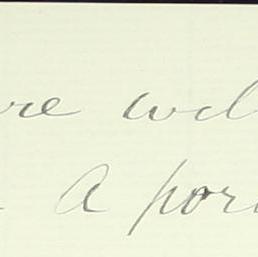 re wel
A por